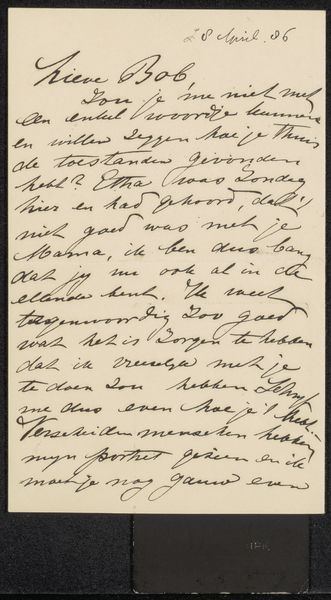 8 April. 86
Lieve Bob
Zou je me niet met
een enkel woordje kunnen
en willen zeggen hoe je thuis
de toestanden gevonden
hebt? Etha was Zondag
hier en had gehoord, dat 't
niet goed was met je
Mama, ik ben dus bang
dat jij nu ook al in de
ellende bent. Ik weet
tegenwoordig zoo goed
wat het is zorgen te hebben
dat ik vreeselijk met je
te doen zou hebben Schrijf
me dus even hoe je 't hebt.
Verscheiden menschen hebben
mijn portret gezien en ik
moet je nog gauw even